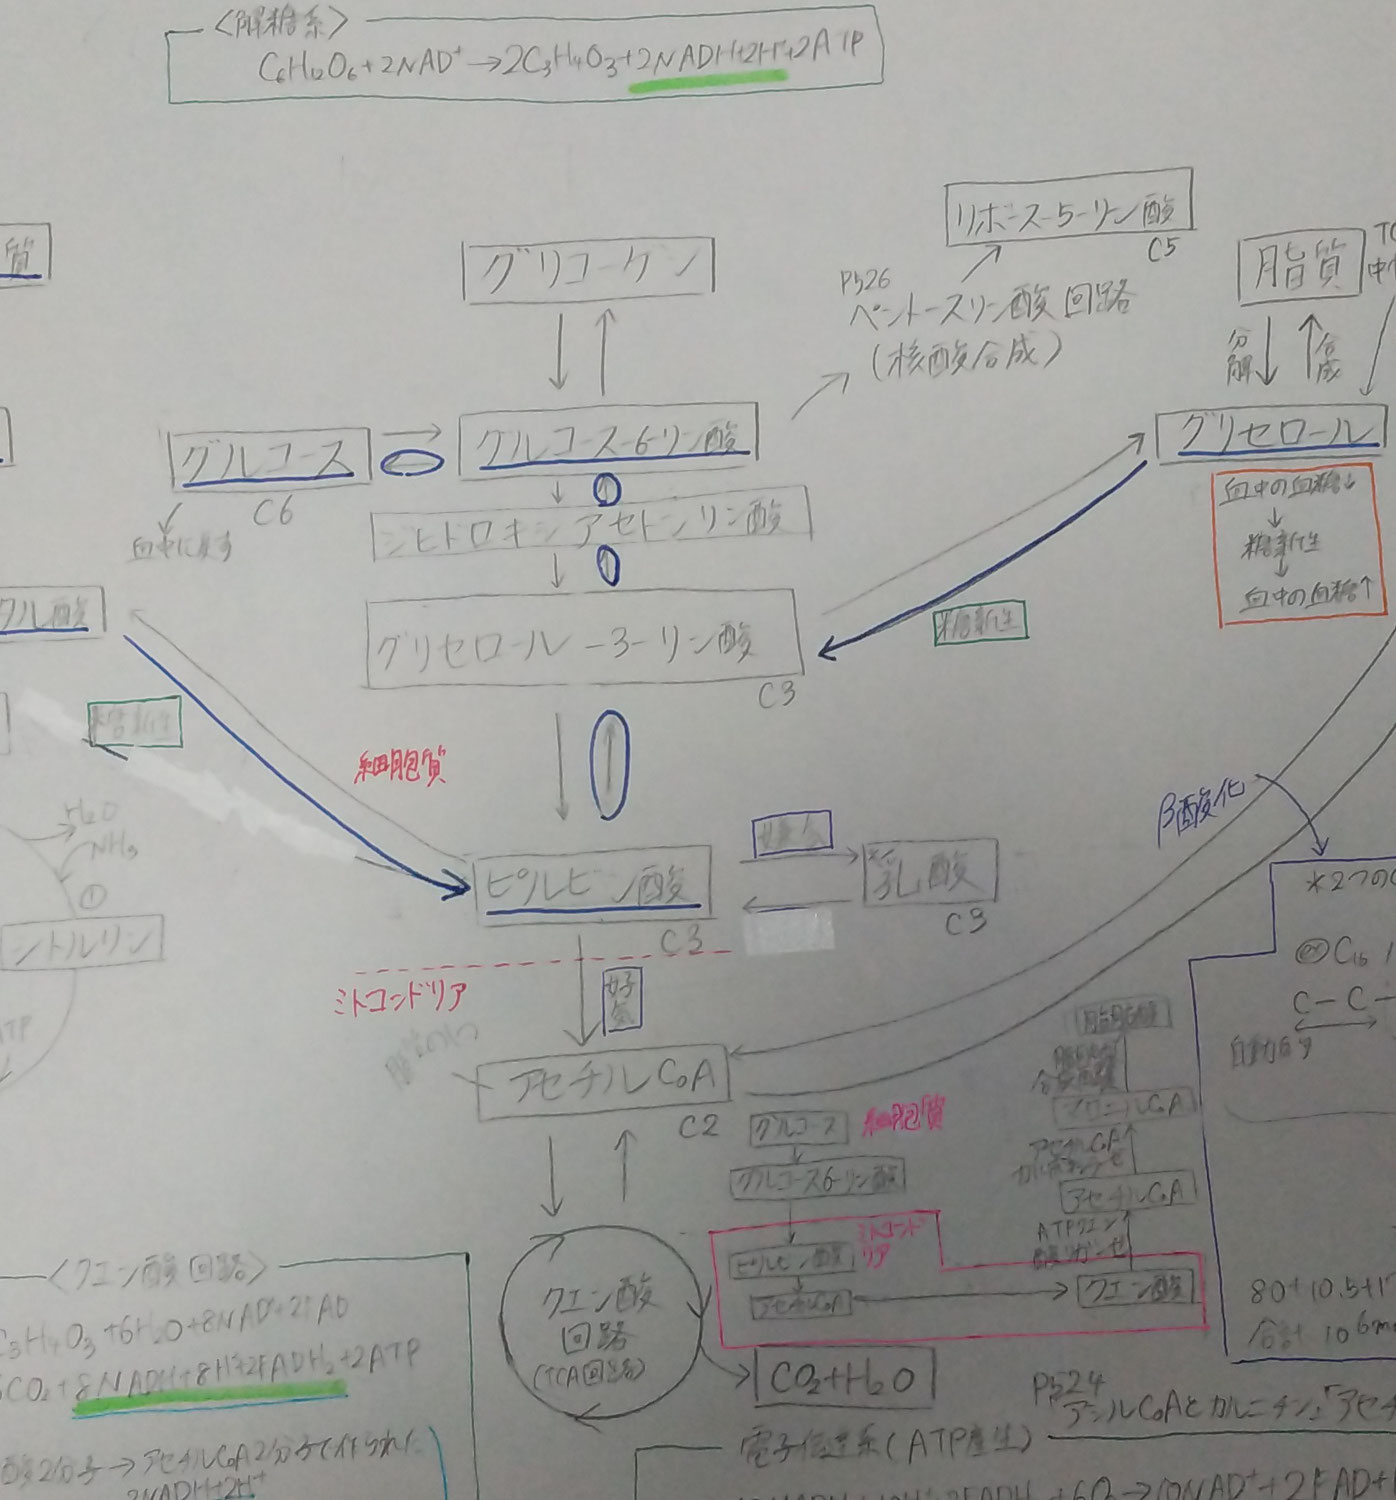 〈解糖系〉
C6H12O6+2NAD+→2C3H4O3+2NADH+2H++2ATP
質
グリコーゲン
リボース-5-リン酸
C5
P526
ペントースリン酸回路
(核酸合成)
脂質
分解
合成
グルコース
C6
血中に戻す
グルコース-6-リン酸
グリセロール
血中の血糖↓
↓
糖新生
↓
血中の血糖↑
ジヒドロキシアセトンリン酸
グリセロール-3-リン酸
C3
糖新生
糖新生
細胞質
H2O
NH3
①
シトルリン
ピルビン酸
C3
乳酸
C3
β酸化
*2つのC
C16
C-C-
ミトコンドリア
好気
アセチルCoA
C2
グルコース
細胞質
グルコース6-リン酸
ミトコンドリア
ピルビン酸
アセチルCoA
クエン酸
ATPクエン
酸リガーゼ
アセチルCoA
マロニルCoA
クエン酸
回路
(TCA回路)
CO2+H2O
〈クエン酸回路〉
C3H4O3+6H2O+8NAD+2FAD
CO2+8NADH+8H++2FADH2+2ATP
酸2分子→アセチルCoA2分子で作られた
2NADH+2H+
80+10.5+1
合計 106m
P524
アシルCoAとカルニチン
電子伝達系(ATP産生)
+6O2→10NAD++2FAD+